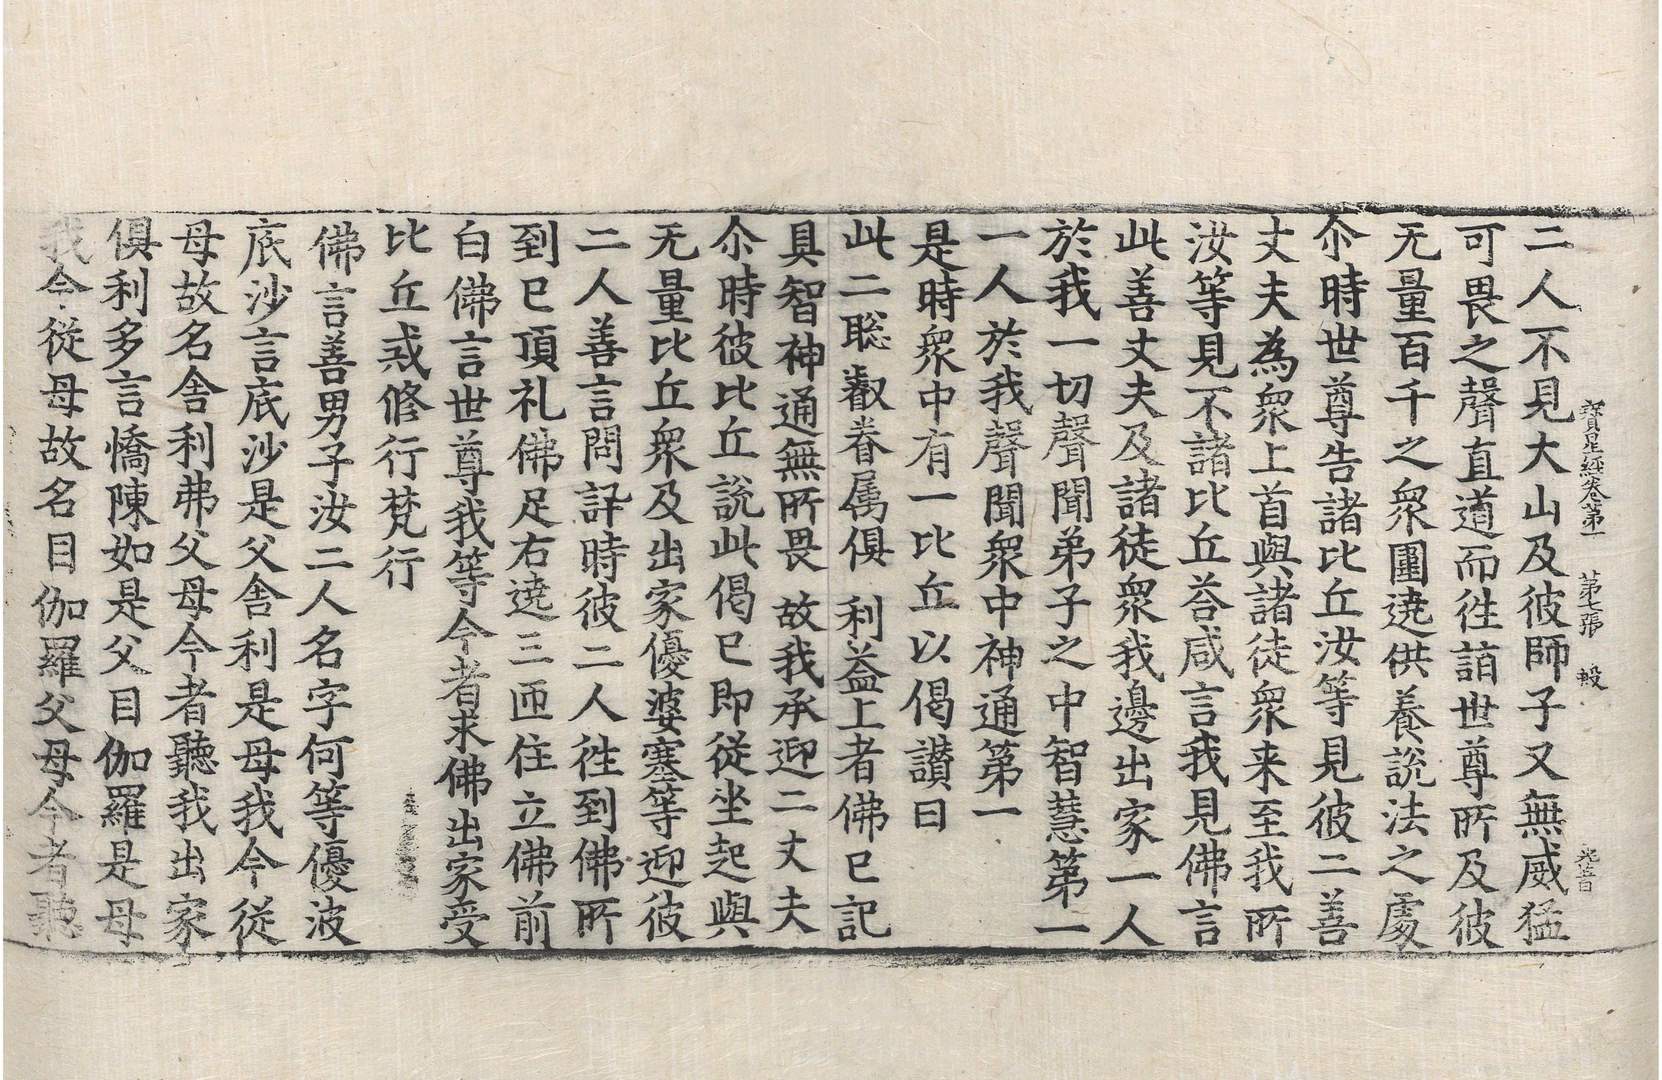 寳星經卷第一 第七張 毀 光音
二人不見大山及彼師子又無威猛
可畏之聲直道而徃詣世尊所及彼
无量百千之衆圍遶供養說法之處
尒時世尊告諸比丘汝等見彼二善
丈夫為衆上首與諸徒衆来至我所
汝等見不諸比丘荅咸言我見佛言
此善丈夫及諸徒衆我邊出家一人
於我一切聲聞弟子之中智慧第一
一人於我聲聞衆中神通第一
是時衆中有一比丘以偈讃曰
此二聡叡眷属俱 利益上者佛已記
具智神通無所畏 故我承迎二丈夫
尒時彼比丘說此偈已即從坐起與
无量比丘衆及出家優婆塞等迎彼
二人善言問訊時彼二人徃到佛所
到已頂礼佛足右遶三匝住立佛前
白佛言世尊我等今者求佛出家受
比丘戒修行梵行
佛言善男子汝二人名字何等優波
底沙言底沙是父舎利是母我今從
母故名舎利弗父母今者聽我出家
俱利多言憍陳如是父目伽羅是母
我今從母故名目伽羅父母今者聽